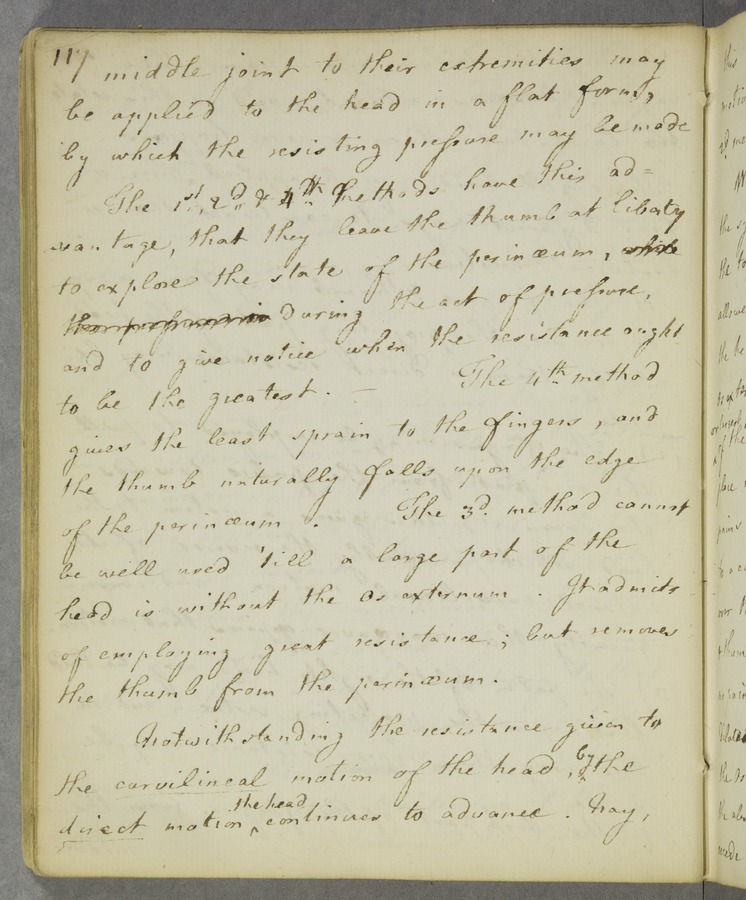 117
middle joint to their extremities may
be applied to the head in a flat form,
by which the resisting pressure may be made
The 1st, 2d & 4th Methods have this ad=
vantage, that they leave the thumb at liberty
to explore the state of the perinæum, while
during the act of pressure,
and to give notice when the resistance ought
to be the greatest. — The 4th method
gives the least sprain to the fingers, and
the thumb naturally falls upon the edge
of the perinæum. The 3d. method cannot
be well used 'till a large part of the
head is without the Os externum. It admits
of employing great resistance; but removes
the thumb from the perinæum.
Notwithstanding the resistance given to
the curvilineal motion of the head, by the
direct motion the head continues to advance. Nay,